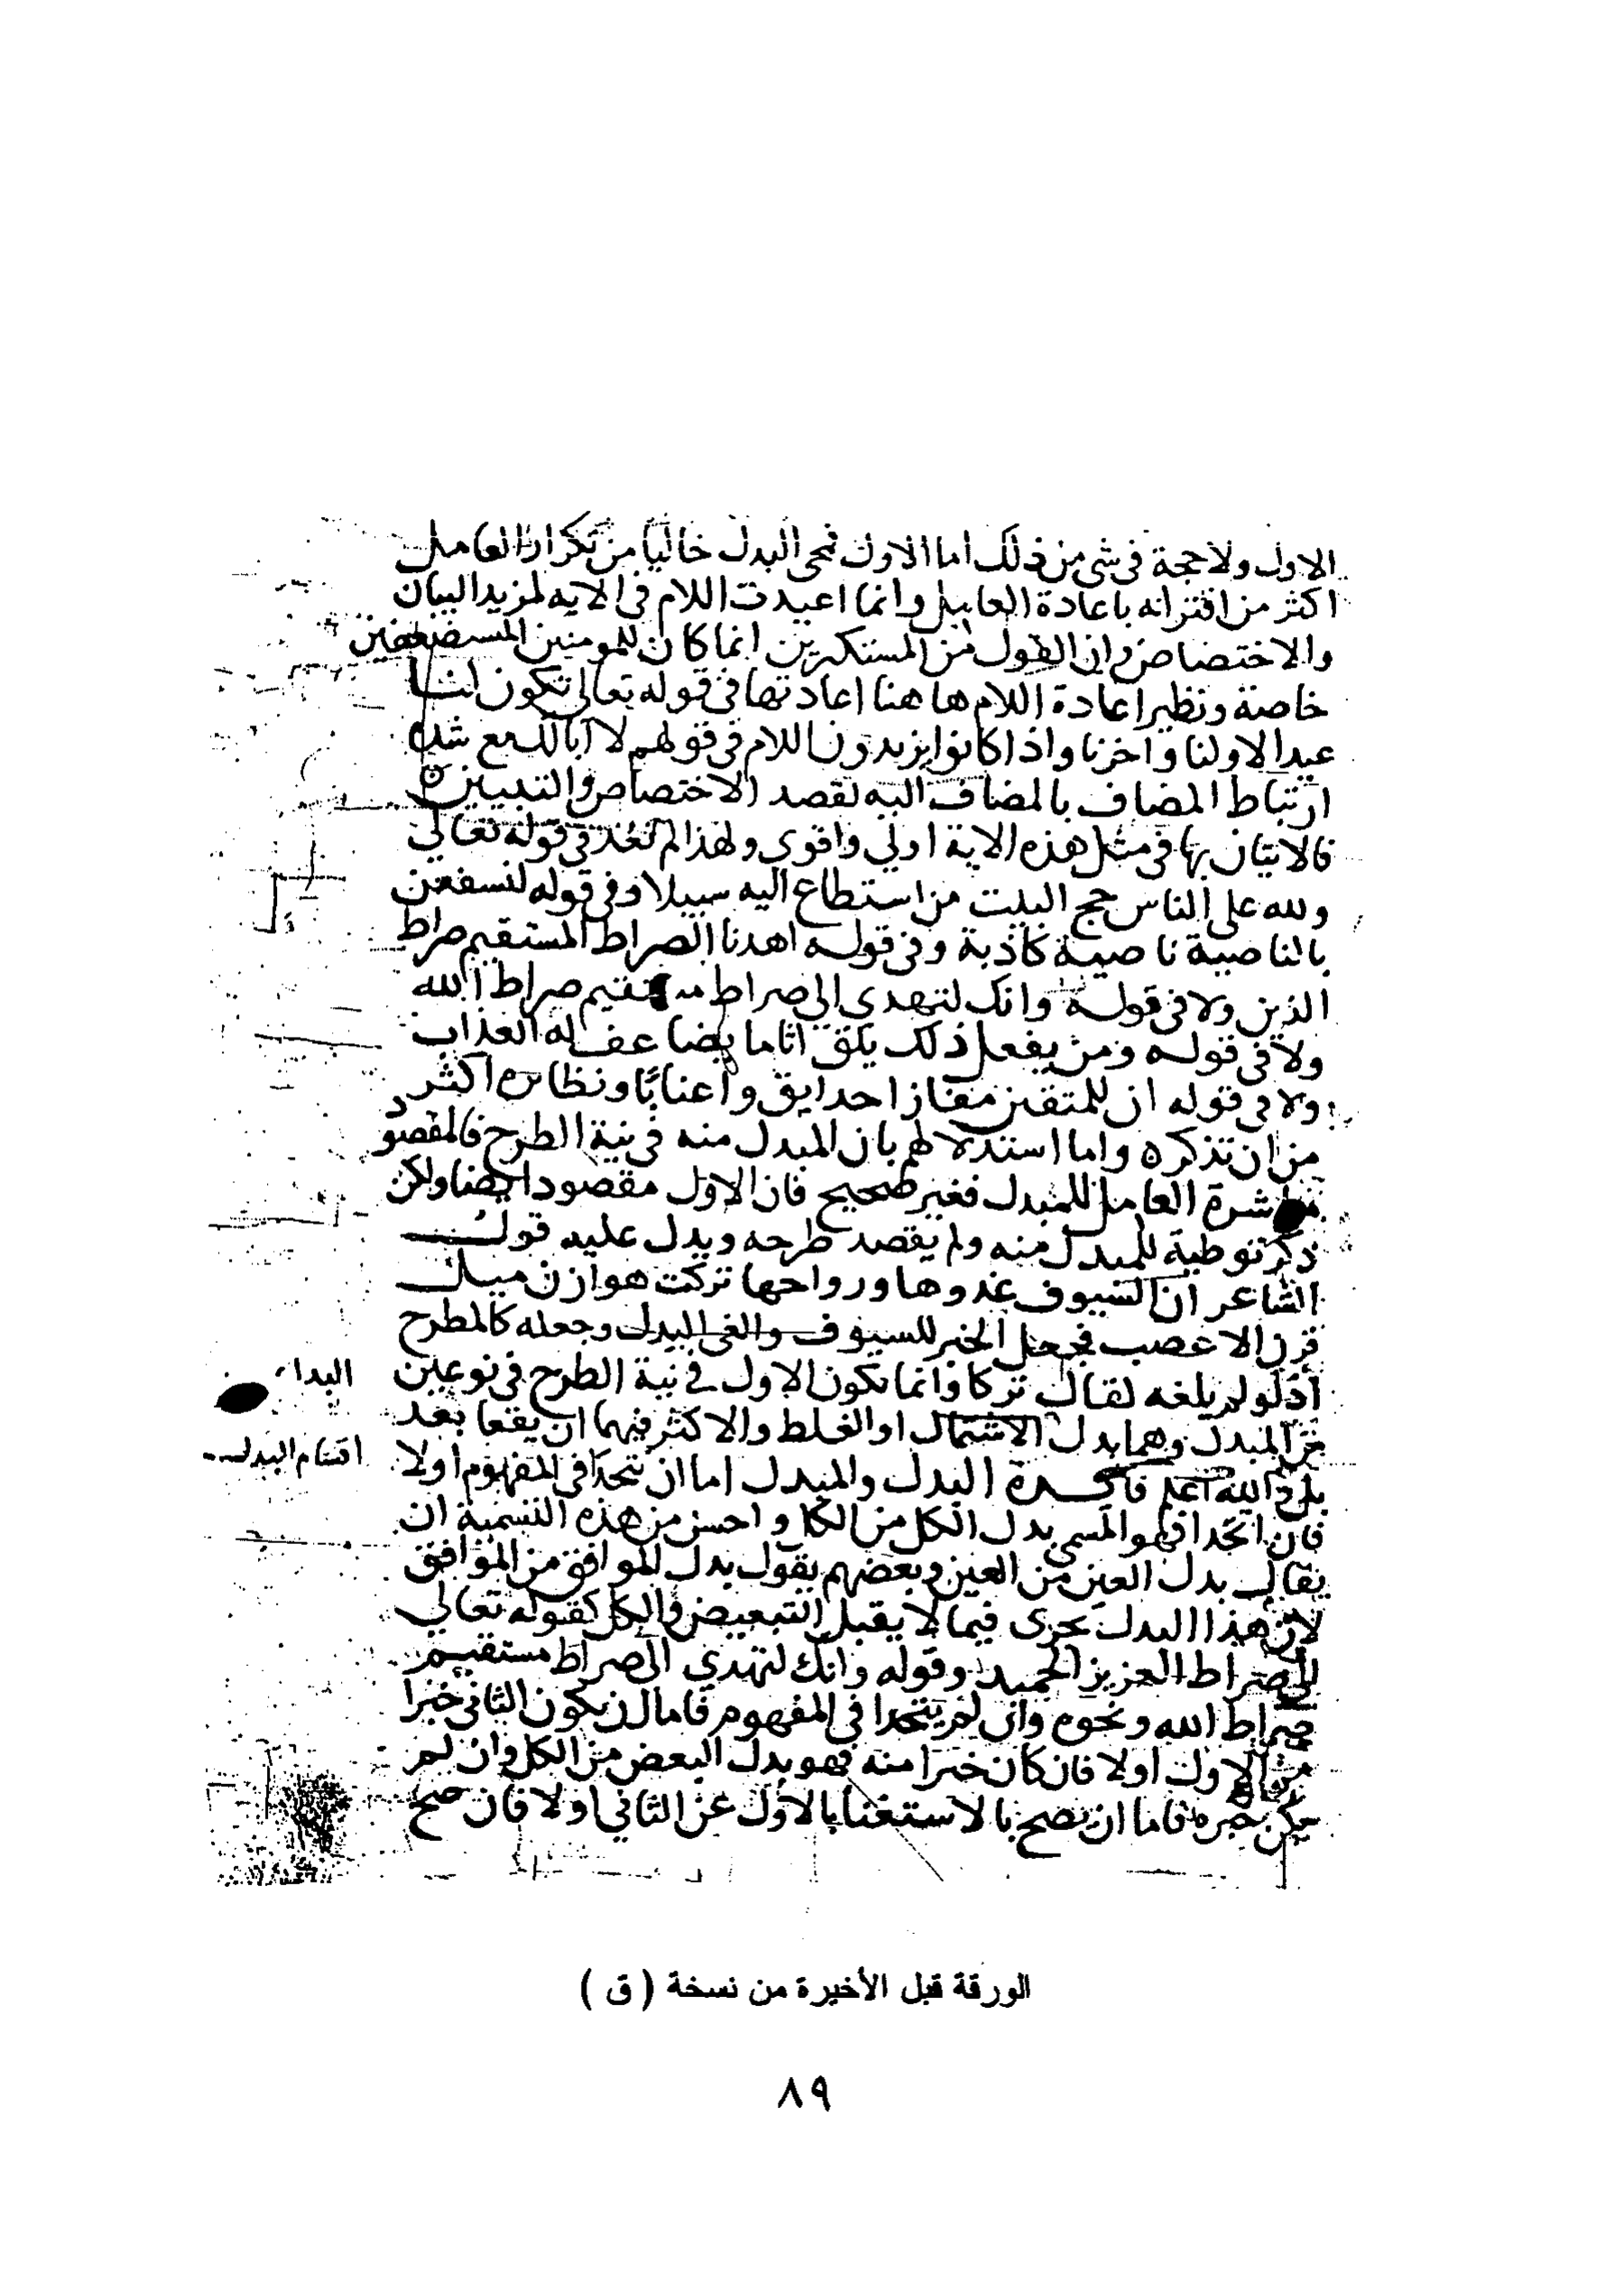 الاول ولا حجة فى شى من ذلك اما الاول فمجى البدل خاليا من تكرار العامل
اكثر من اقترانه باعادة العامل وانما اعيدت اللام فى الايه لمزيد البيان
والاختصاص وان القول من المستكبرين انما كان للمومنين المستضعفين
خاصة ونظير اعادة اللام هاهنا اعادتها فى قوله تعالى تكون لنا
عيدا لاولنا واخرنا واذا كانوا يزيدون اللام فى قولهم لا ابا لك مع شدة
ارتباط المضاف بالمضاف اليه لقصد الاختصاص والتبيين
فالاتيان بها فى مثل هذه الاية اولي واقوى ولهذا لم تعد فى قوله تعالي
ولله على الناس حج البيت من استطاع اليه سبيلا وفى قوله لنسفعن
بالناصية ناصية كاذبة وفى قوله اهدنا الصراط المستقيم صراط
الذين ولا فى قوله وانك لتهدى الى صراط مستقيم صراط الله
ولا فى قوله ومن يفعل ذلك يلق اثاما يضاعف له العذاب
ولا فى قوله ان للمتقين مفازا حدايق واعنابًا ونظايره اكثر
من ان تذكره واما استدلالهم بان المبدل منه فى نية الطرح فالمقصود
مباشرة العامل للمبدل فغير صحيح فان الاول مقصود ايضا ولكن
ذكر توطية للمبدل منه ولم يقصد طرحه ويدل عليه قول
الشاعر ان السيوف غدوها ورواحها تركت هوازن مثل
قرن الاعضب فجعل الخبر للسيوف والغى البدل وجعله كالمطرح
اذ لو لم يلغه لقال تركا وانما تكون الاول فى نية الطرح فى نوعين
من المبدل وهما بدل الاشتمال او الغلط والاكثر فيهما ان يقعا بعد
البدا
بل والله اعلم فايدة البدل والمبدل اما ان يتحدا فى المفهوم او لا
اقسام البدل
فان اتحدا فهو المسمى بدل الكل من الكل واحسن من هذه التسمية ان
يقال بدل العين من العين وبعضهم يقول بدل الموافق من الموافق
لان هذا البدل يجرى فيما لا يقبل التبعيض والكل كقوله تعالي
الى صراط العزيز الحميد وقوله وانك لتهدي الى صراط مستقيم
صراط الله ونحوه وان لم يتحدا فى المفهوم فاما ان يكون الثانى جزا
من الاول او لا فان كان جزا منه فهو بدل البعض من الكل وان لم
يكن جزه فاما ان يصح بالاستغنا بالاول عن الثاني او لا فان صح
الورقة قبل الأخيرة من نسخة ( ق )
٨٩